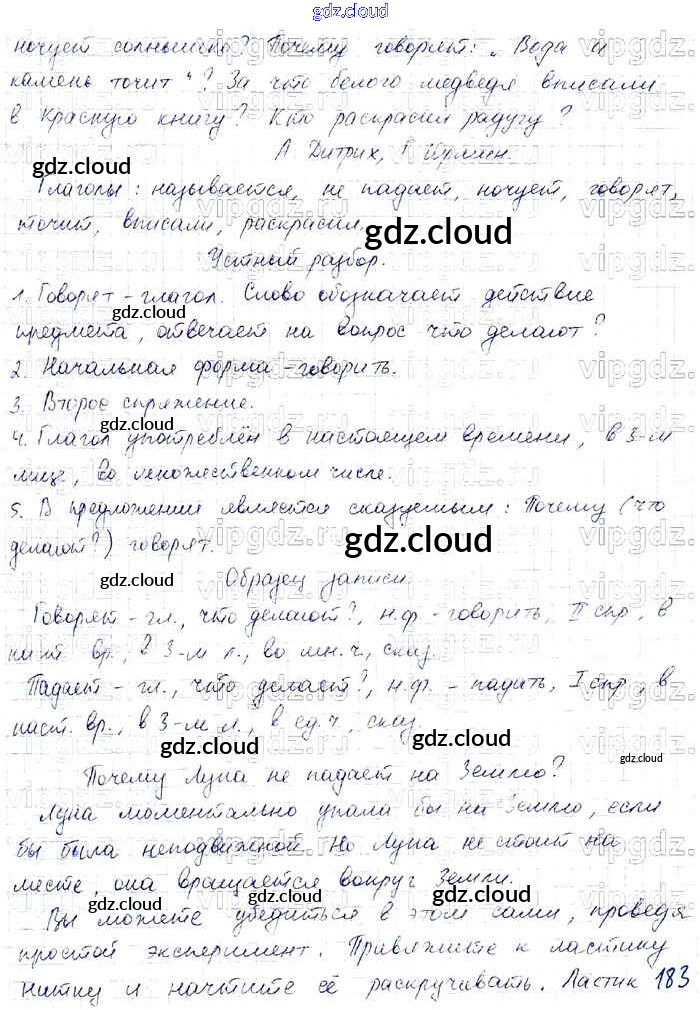 gdz.cloud
ночует солнышко? Почему говорят: „Вода и
камень точит“? За что белого медведя вписали
в Красную книгу? Кто раскрасил радугу?
А Дитрих, Г Юрмин.
Глаголы: называется, не падает, ночует, говорят,
точит, вписали, раскрасил.
Устный разбор.
1. Говорят - глагол. Слово обозначает действие
предмета, отвечает на вопрос что делают?
2. Начальная форма - говорить.
3. Второе спряжение.
4. Глагол употреблён в настоящем времени, в 3-м
лице, во множественном числе.
5. В предложении является сказуемым: Почему (что
делают?) говорят.
Образец записи.
Говорят - гл., что делают?, н.ф - говорить, II спр, в
наст. вр., в 3-м л., во мн.ч, сказ.
Падает - гл., что делает?, н.ф. - падать, I спр, в
наст. вр., в 3-м л., в ед.ч, сказ.
Почему Луна не падает на Землю?
Луна моментально упала бы на Землю, если
бы была неподвижной Но Луна не стоит на
месте, она вращается вокруг Земли.
Вы можете убедиться в этом сами, проведя
простой эксперимент. Привяжите к ластику
нитку и начните её раскручивать. Ластик 183